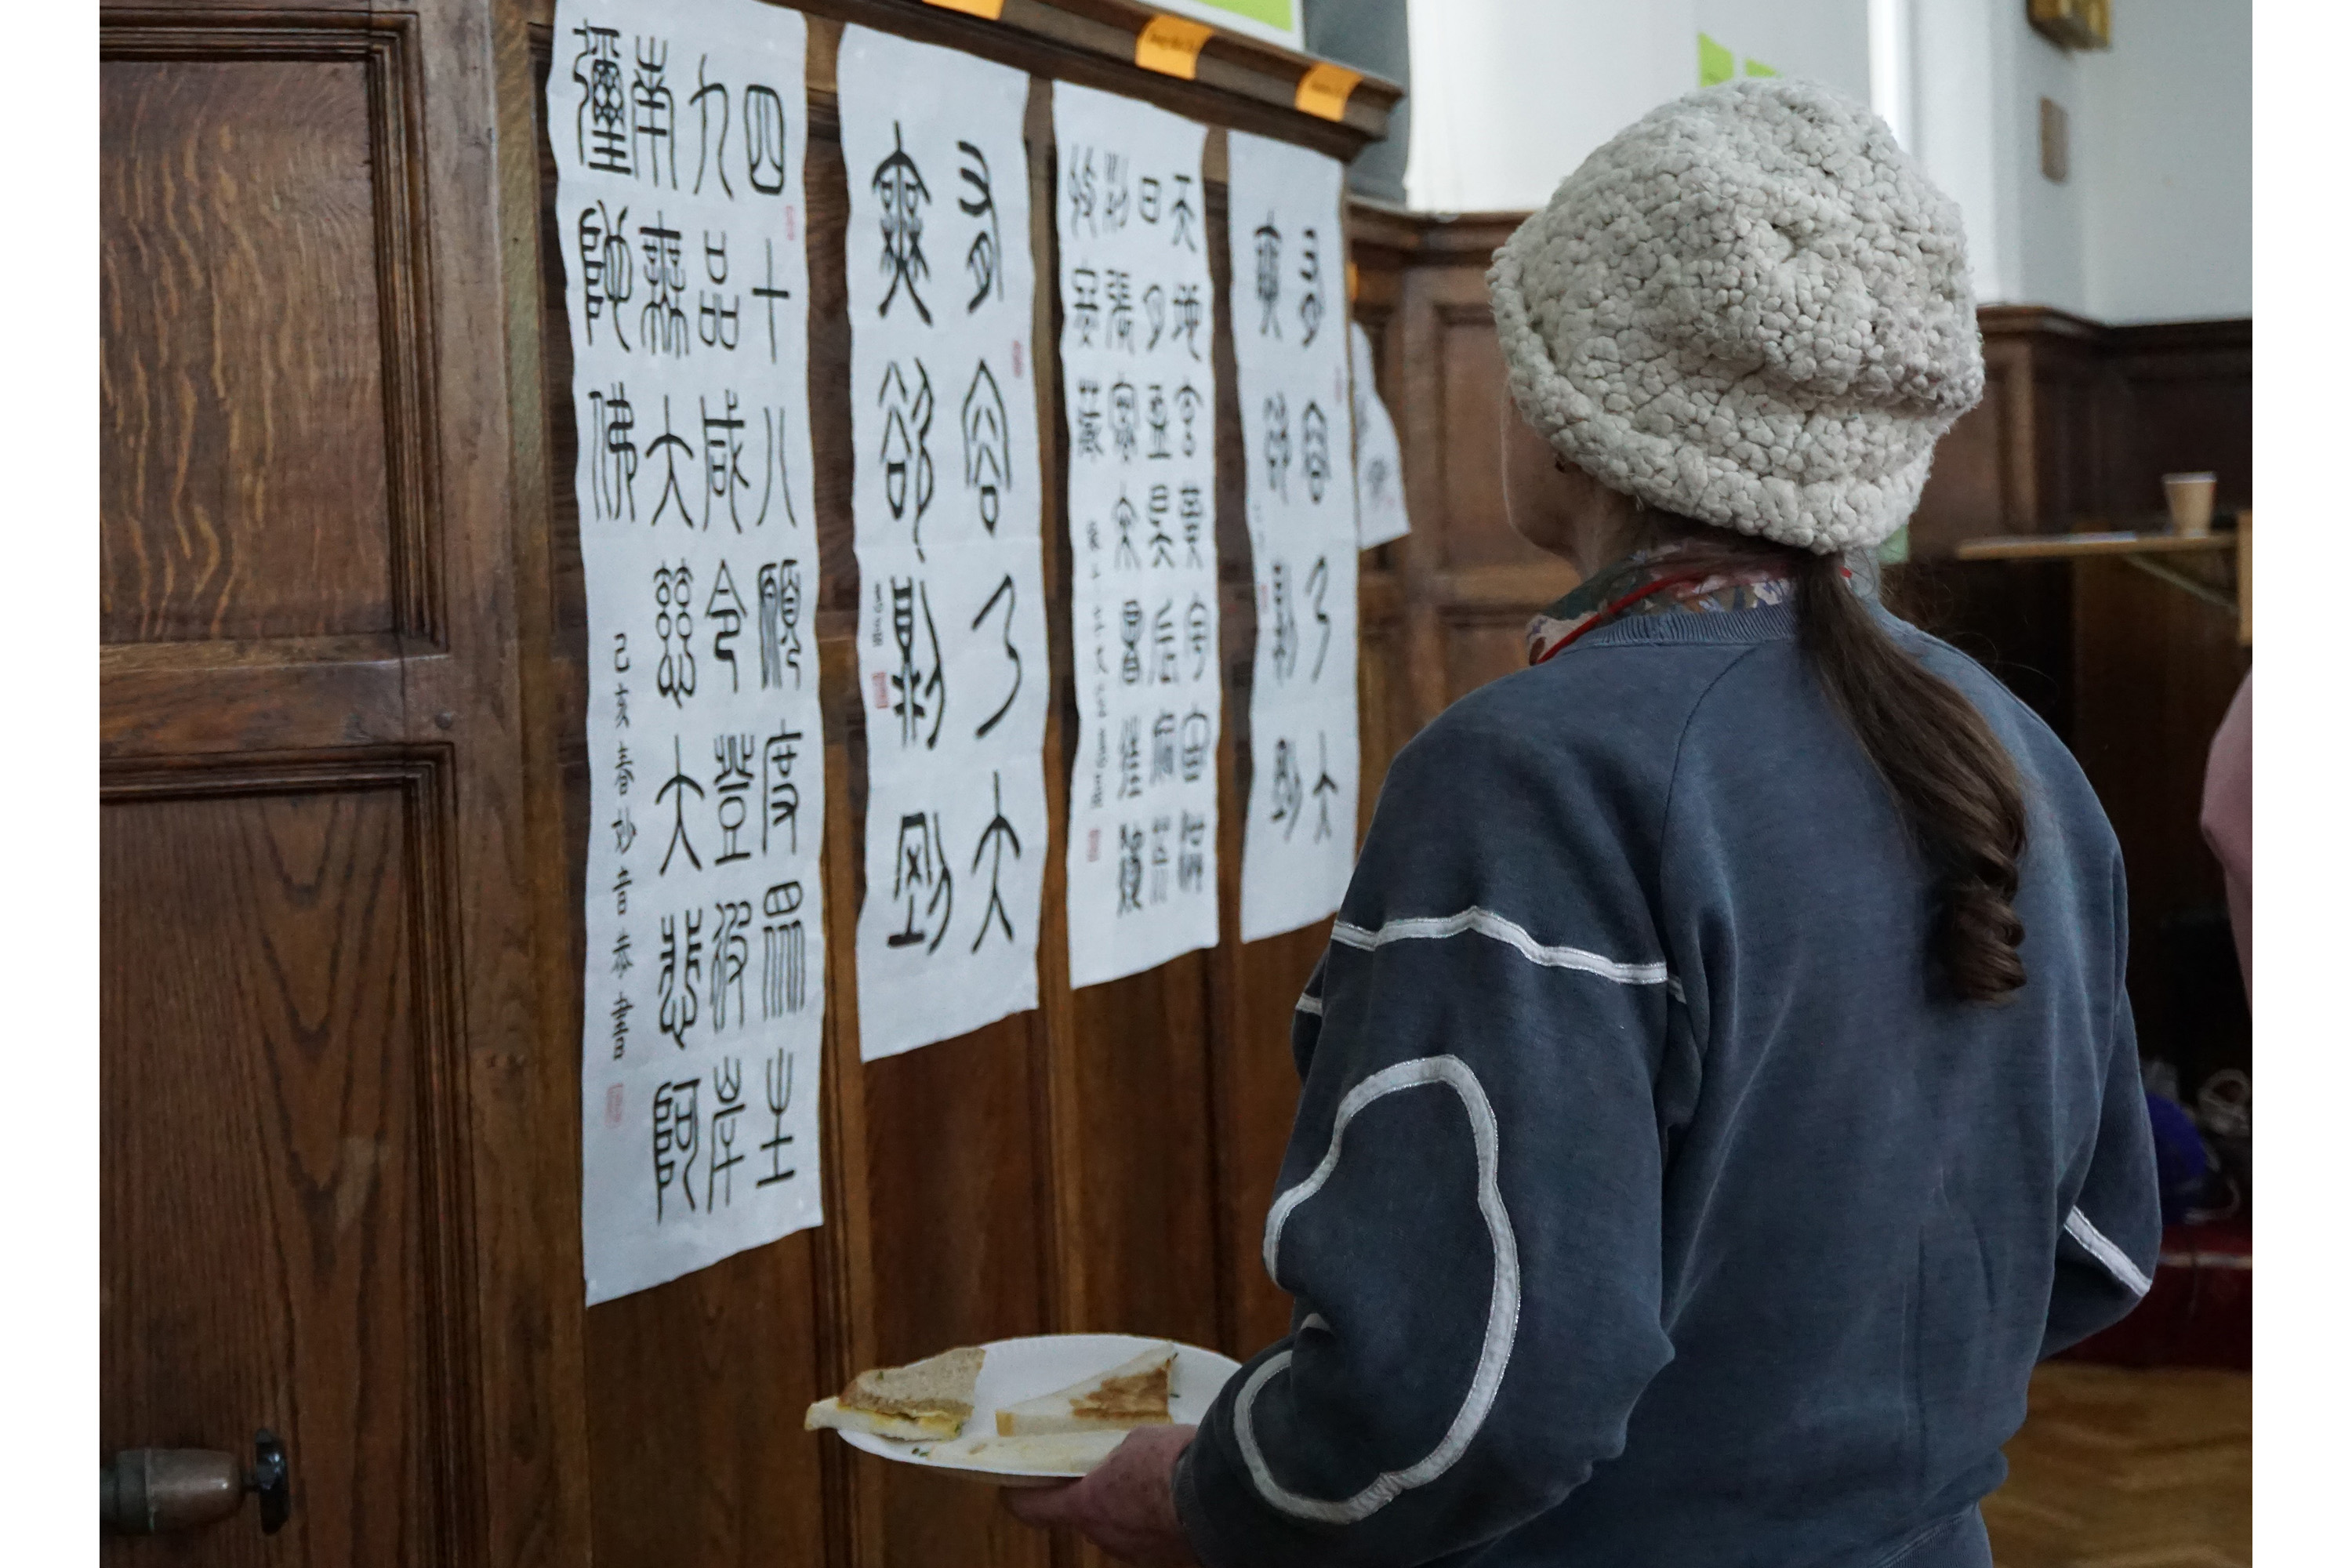 四十八願度眾生
九品咸令登彼岸
南無大慈大悲阿
彌陀佛
己亥春妙音恭書
有容乃大
無欲則剛
天地玄黃宇宙洪
日月盈昃辰宿
列張寒來暑往秋
收冬藏
有容乃大
無欲則剛